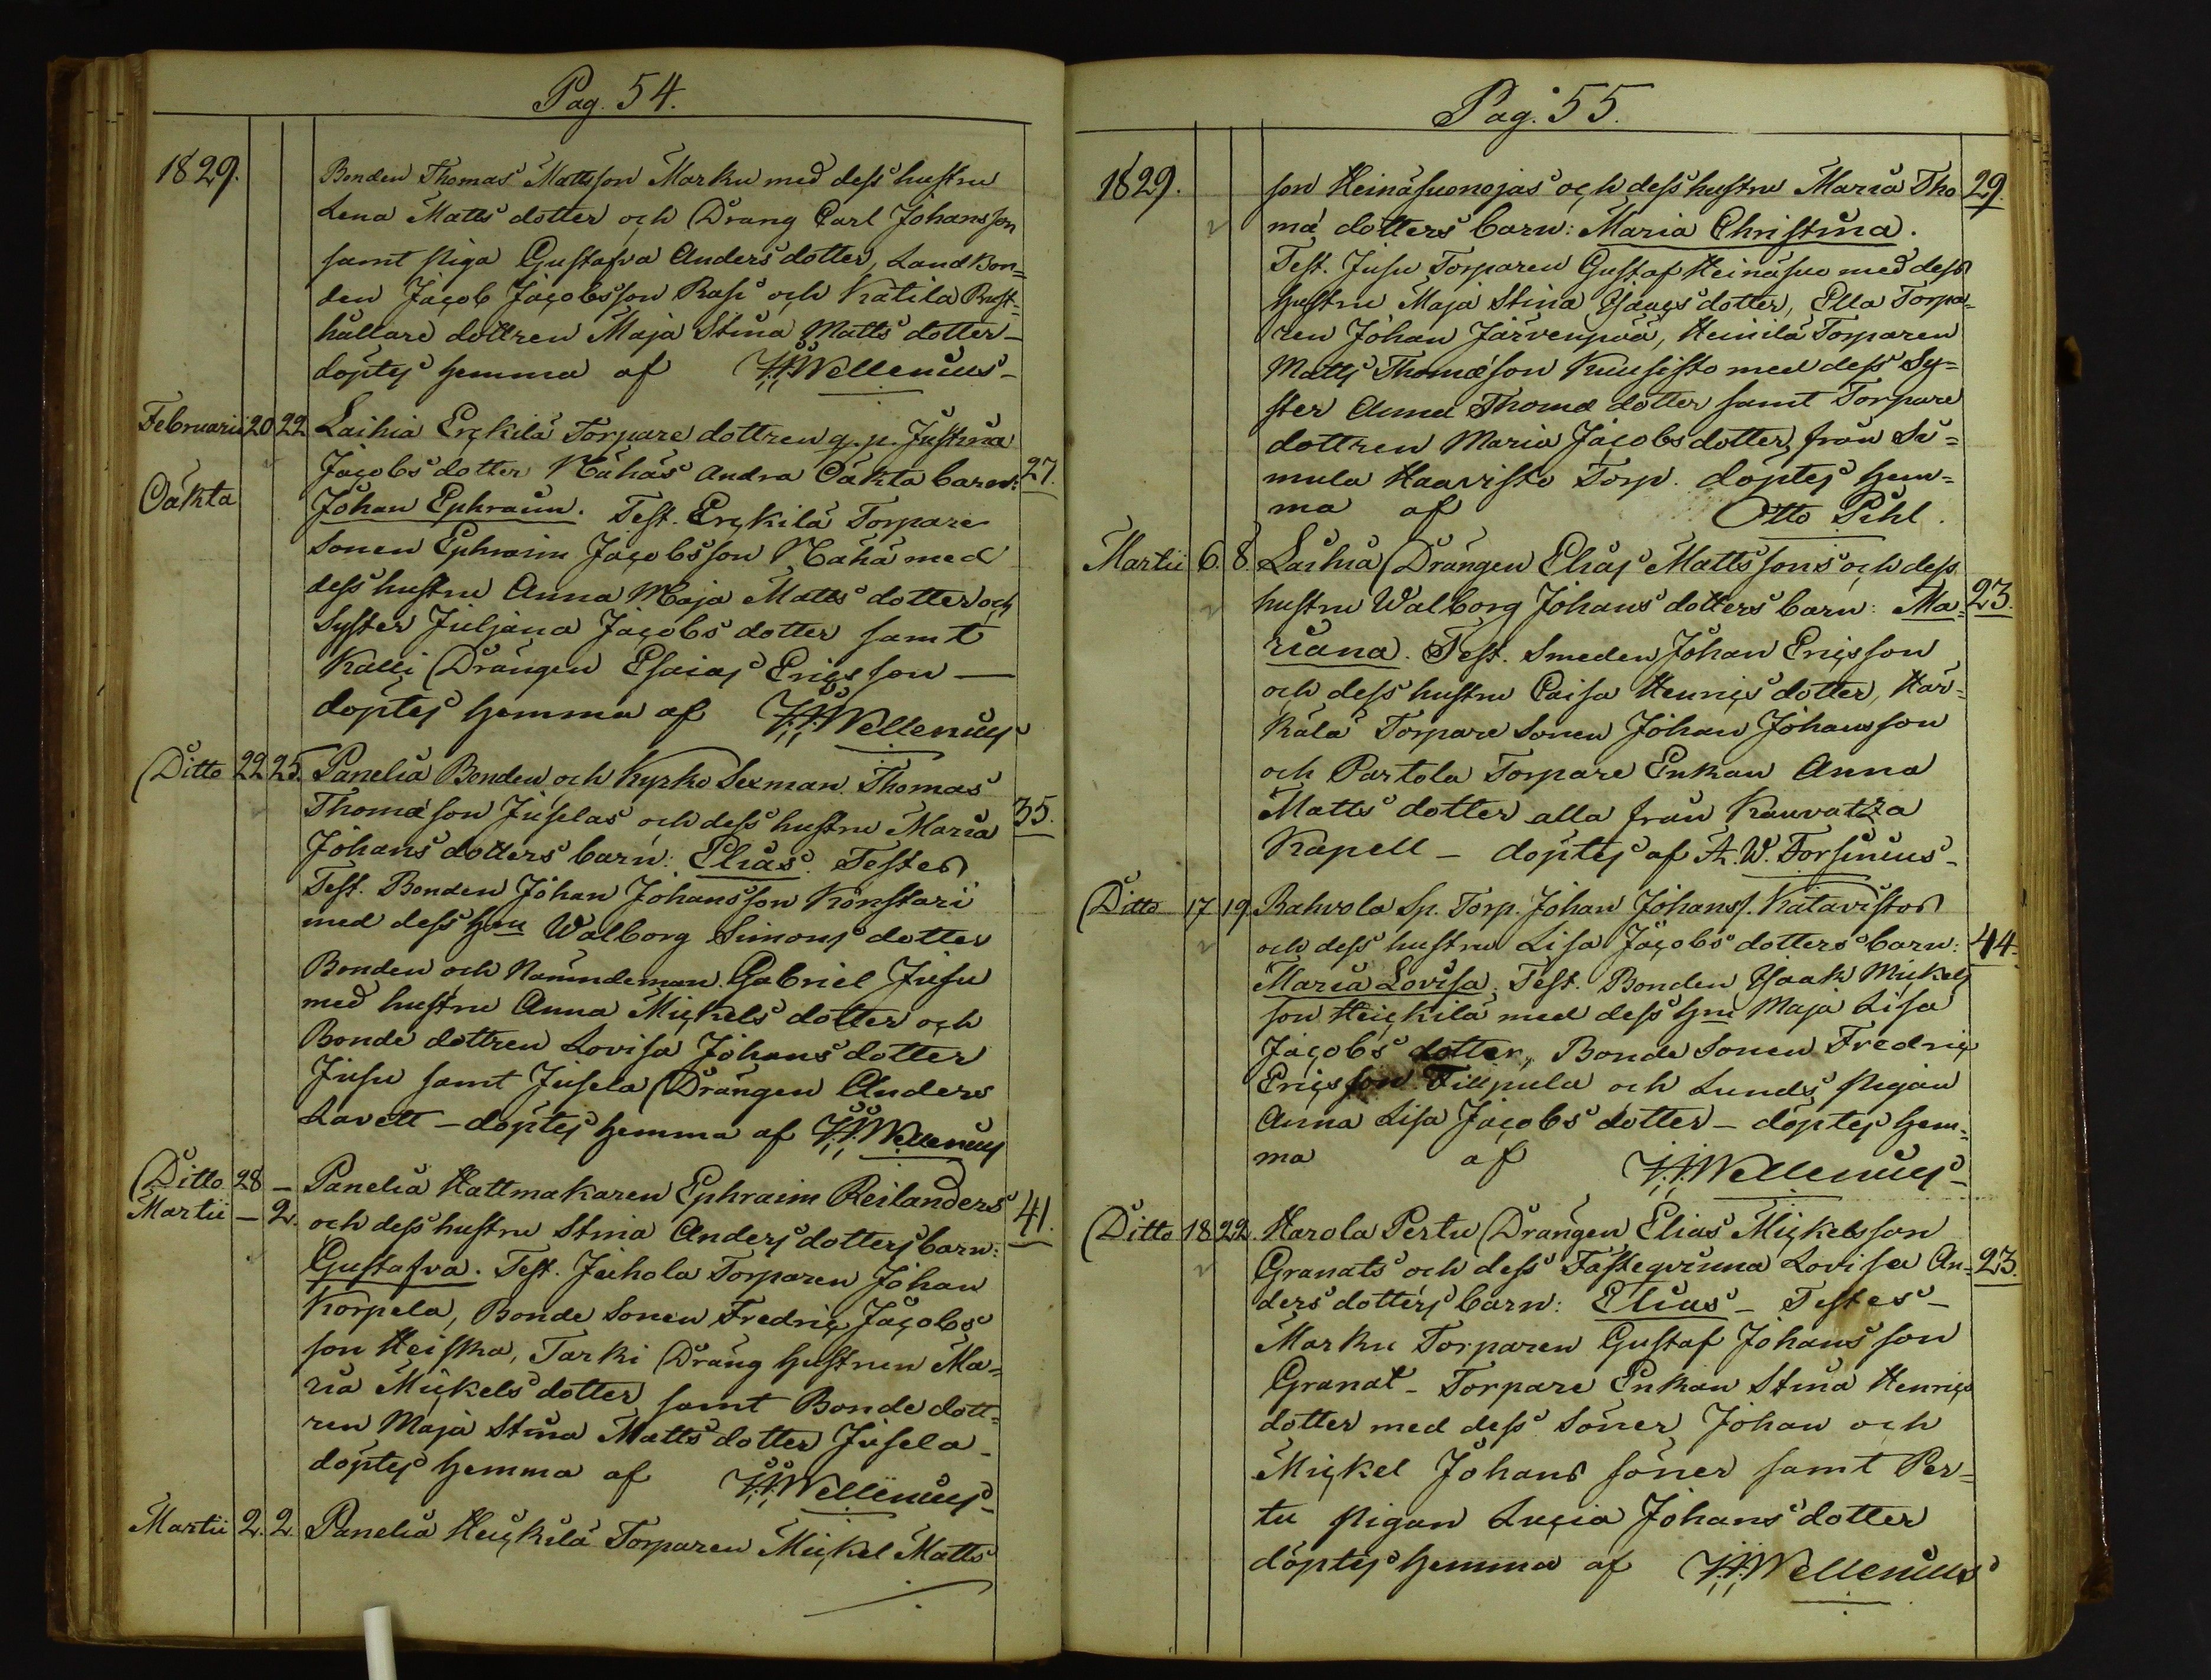 Pag. 54.
1829. Bonden Thomas Mattsson Marku med dess hustru
Lena Matts dotter och Dräng Carl Johansson
samt piga Gustafva Anders dotter, Land Bon=
den Jacob Jacobsson Rasi och Katila Rust=
hållare dottren Maja Stina Matts dotter –
döptes hemma af H. H. Wellenius –
Februarii 20 22 Laihia Erckilä Torpare dottren q. p. Justina
Jacobs dotter Nähäs andra Oäkta barn: 27.
Oäkta Johan Ephraim. Test. Erckilä Torpare
Sonen Ephraim Jacobsson Nähä med
dess hustru Anna Maja Matts dotter och
Syster Juljana Jacobs dotter samt
Kalli Drängen Esaias Ericsson –
döptes hemma af H. H. Wellenius
Ditto 22 25. Panelia Bonden och Kyrko Sexman Thomas
Thomæson Juselas och dess hustru Maria 35.
Johans dotters barn: Elias. Testes
Test. Bonden Johan Johansson Könstari
med dess hru Walborg Simons dotter
Bonden och Nämndeman Gabriel Jusu
med hustru Anna Mickels dotter och
Bonde dottren Lovisa Johans dotter
Jusu samt Jusela Drängen Anders
Lavett – döptes hemma af H. H. Wellenius
Ditto 28 – Panelia Hattmakaren Ephraim Reilanders
Martii – 2. och dess hustru Stina Anders dotters barn: 41.
Gustafva. Test. Juhola Torparen Johan
Korpela, Bonde Sonen Fredric Jacobs
son Heiska, Tarki Dräng hustrun Ma=
ria Mickels dotter samt Bonde dott=
ren Maja Stina Matts dotter Jusela –
döptes hemma af H. H. Wellenius –
Martii 2. 2. Panelia Heickilä Torparen Mickel Matts
Pag. 55.
1829. son Heinäsuonojas och dess hustru Maria Tho 29.
mæ dotters barn: Maria Christina.
Test. Jusu Torparen Gustaf Heinäsuo med dess
hustru Maja Stina Isaacs dotter, Ella Torpa=
ren Johan Järvenpää, Heinilä Torparen
Matts Thomæson Kuusisto med dess Sy=
ster Anna Thomæ dotter samt Torpare
dottren Maria Jacobs dotter, från Su=
mula Haavisto Torp. döptes hem=
ma af Otto Pihl.
Martii 6. 8. Laihia Drängen Elias Mattssons och dess
hustru Walborg Johans dotters barn: Ma= 23.
riana. Test. Smeden Johan Ericsson
och dess hustru Caisa Henrics dotter, Här=
kälä Torpare Sonen Johan Johansson
och Partola Torpare Enkan Anna
Matts dotter alla från Kauvatza
Kapell – döptes af A. W. Forsinius –
Ditto 17 19. Rahvola Sp. Torp. Johan Johanss. Katavistos
och dess hustru Lisa Jacobs dotters barn: 44.
Maria Lovisa. Test. Bonden Isaak Mickels
son Heickilä med dess hru Maja Lisa
Jacobs dotter, Bonde Sonen Fredric
Ericsson Fillpula och Lunds pigan
Anna Lisa Jacobs dotter – döptes hem=
ma af H. H. Wellenius –
Ditto 18 22. Harola Pertu Drängen Elias Mickelsson
Granats och dess Fästeqvinna Lovisa An= 23.
ders dotters barn: Elias – Testes –
Marku Torparen Gustaf Johansson
Granat – Torpare Enkan Stina Henrics
dotter med dess Söner Johan och
Mickel Johans söner samt Per=
tu pigan Lucia Johans dotter
döptes hemma af H. H. Wellenius